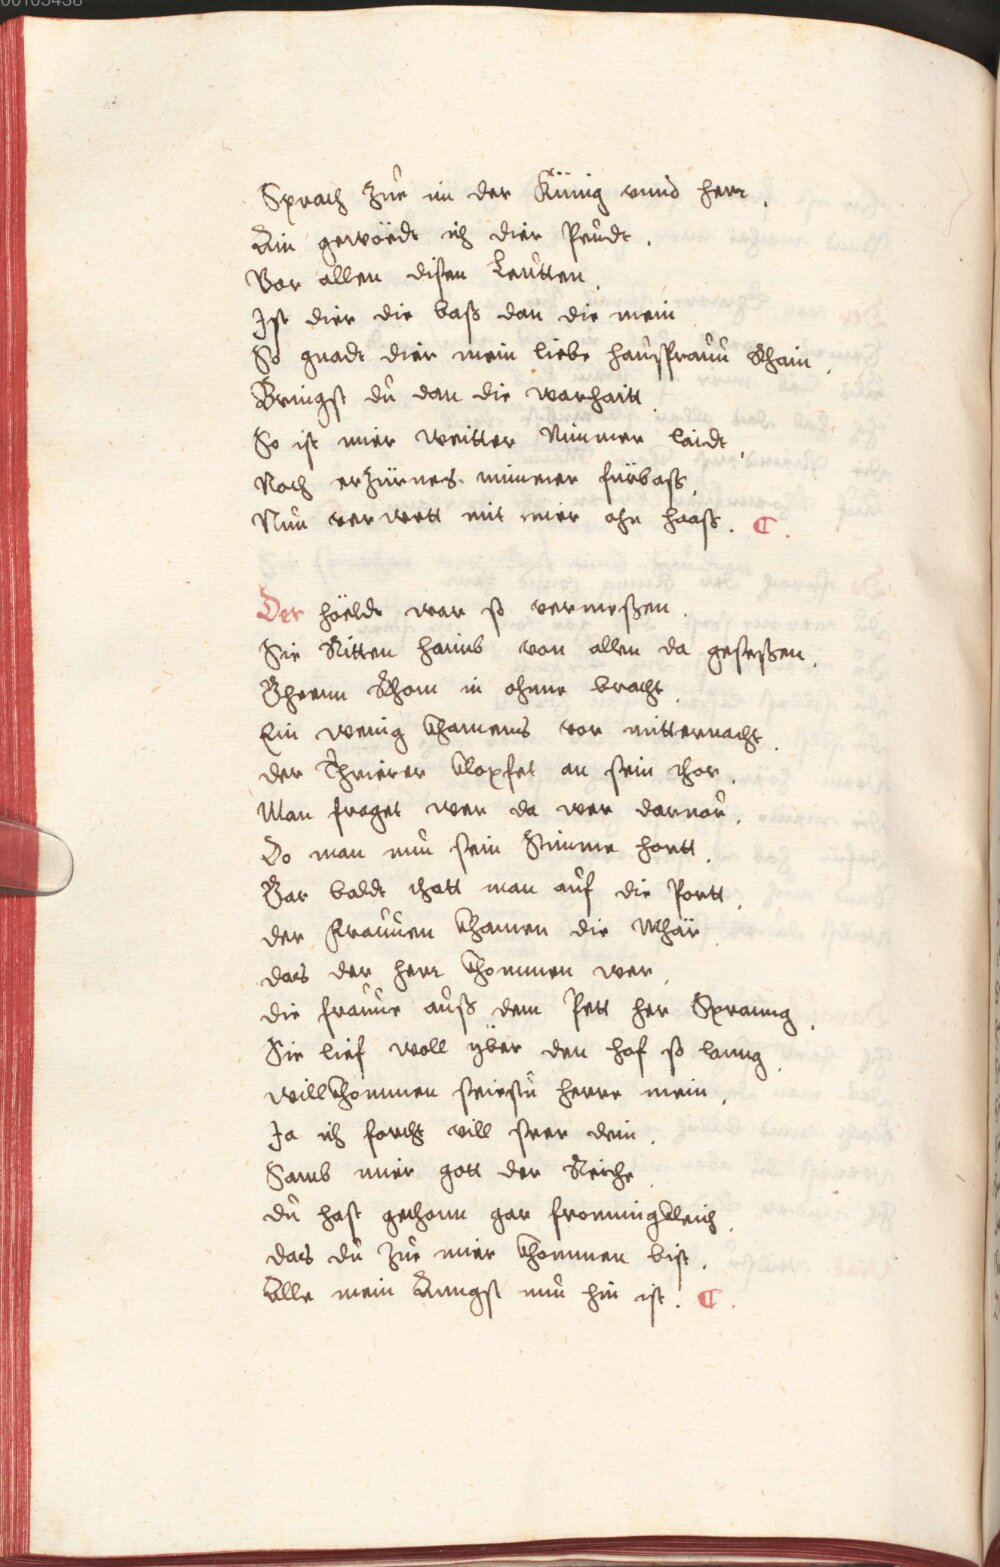 00103438
Sprach Zue im der Künig vnnd herr,
Ain gewöedt ich dier Peudt,
Vor allen disen Leutten,
Ist dier die baß dan die mein
So gnadt dier mein liebe haußfrauw Khain,
Bringst du dan die warhaitt,
So ist mier weitter Nimmer laidt,
Noch erzürnes nimmer fürbaß,
Nun verwett mit mier ohn haaß. ¶.
Der höeldt war so vermeßen.
Sie Ritten haimb von allen da geseßen,
Gheenn Rhom in ohnne bracht,
Ein wenig khamens vor mitternacht,
der Thrierer klopfet an sein thor,
Man fraget wer da wer daruor,
Do man nun sein Stimme hortt,
Gar baldt thatt man auf die Portt,
der Frauuen khamen die Mhär,
das der herr khommen wer,
die frauue auß dem Pett her Spranng,
Sie lief woll yber den hof so lanng,
willkhommen seiestu herre mein,
Ja ich forcht vill seer dein,
Samb mier gott der Reiche,
du hast gethonn gar frommigkleich,
das du Zue mier khommen bist,
Alle mein Anngst nun hin ist. ¶.